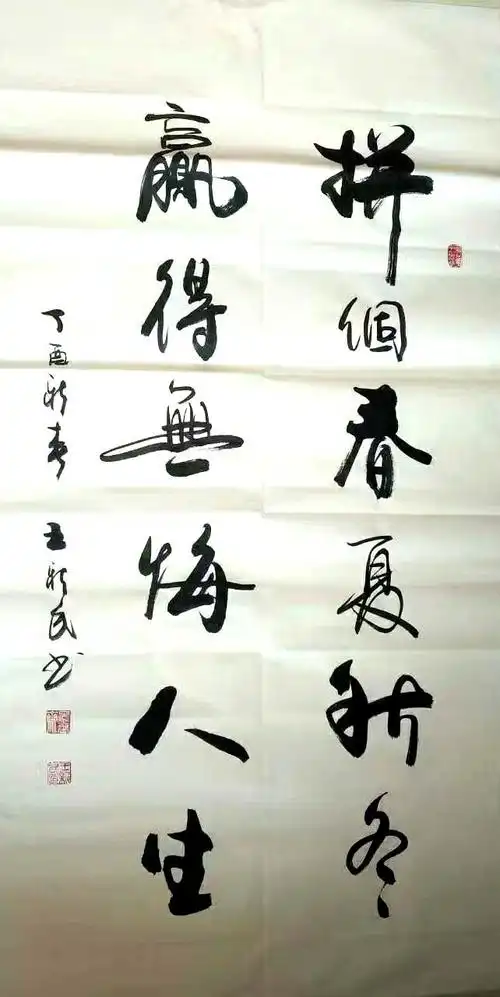 拼個春夏秋冬
贏得無悔人生
丁酉新春 王新民书